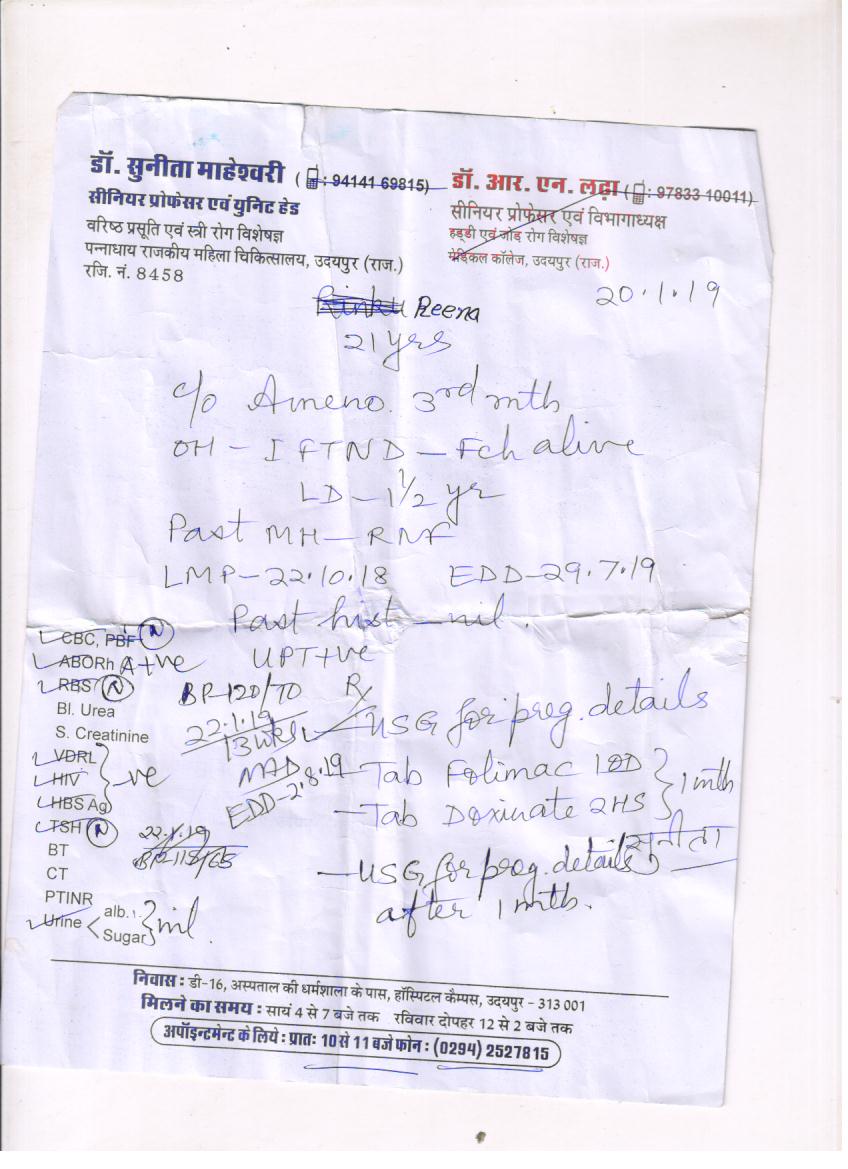 डॉ. सुनीता माहेश्वरी ( : 94141 69815)
सीनियर प्रोफेसर एवं युनिट हेड
वरिष्ठ प्रसूति एवं स्त्री रोग विशेषज्ञ
पन्नाधाय राजकीय महिला चिकित्सालय, उदयपुर (राज.)
रजि. नं. 8458
डॉ. आर. एन. लढ़ा ( : 97833 10011)
सीनियर प्रोफेसर एवं विभागाध्यक्ष
हड्डी एवं जोड़ रोग विशेषज्ञ
मेडिकल कॉलेज, उदयपुर (राज.)
20.1.19
Rinku Reena
21 yrs
c/o Ameno. 3rd mth
OH - I FTND - Fch alive
LD - 1½ yr
Past MH - RNF
LMP - 22.10.18 EDD - 29.7.19
Past hist - nil.
UPT +ve
CBC, PBF N
ABORh A+ve
RBS N
Bl. Urea
S. Creatinine
VDRL
HIV -ve
HBS Ag
TSH N
BT
CT
PTINR
Urine < alb. Sugar } nil.
BP-120/70
22.1.19
13 wks
NAD
EDD-2.8.19
22.1.19
BP-118/68
Rx
USG for preg. details
- Tab Folimac 1OD
- Tab Doxinate 2HS } 1 mth
सुनीता
- USG for preg. details
after 1 mth.
निवास : डी-16, अस्पताल की धर्मशाला के पास, हॉस्पिटल कैम्पस, उदयपुर - 313 001
मिलने का समय : सायं 4 से 7 बजे तक रविवार दोपहर 12 से 2 बजे तक
अपॉइन्टमेन्ट के लिये : प्रातः 10 से 11 बजे फोन : (0294) 2527815